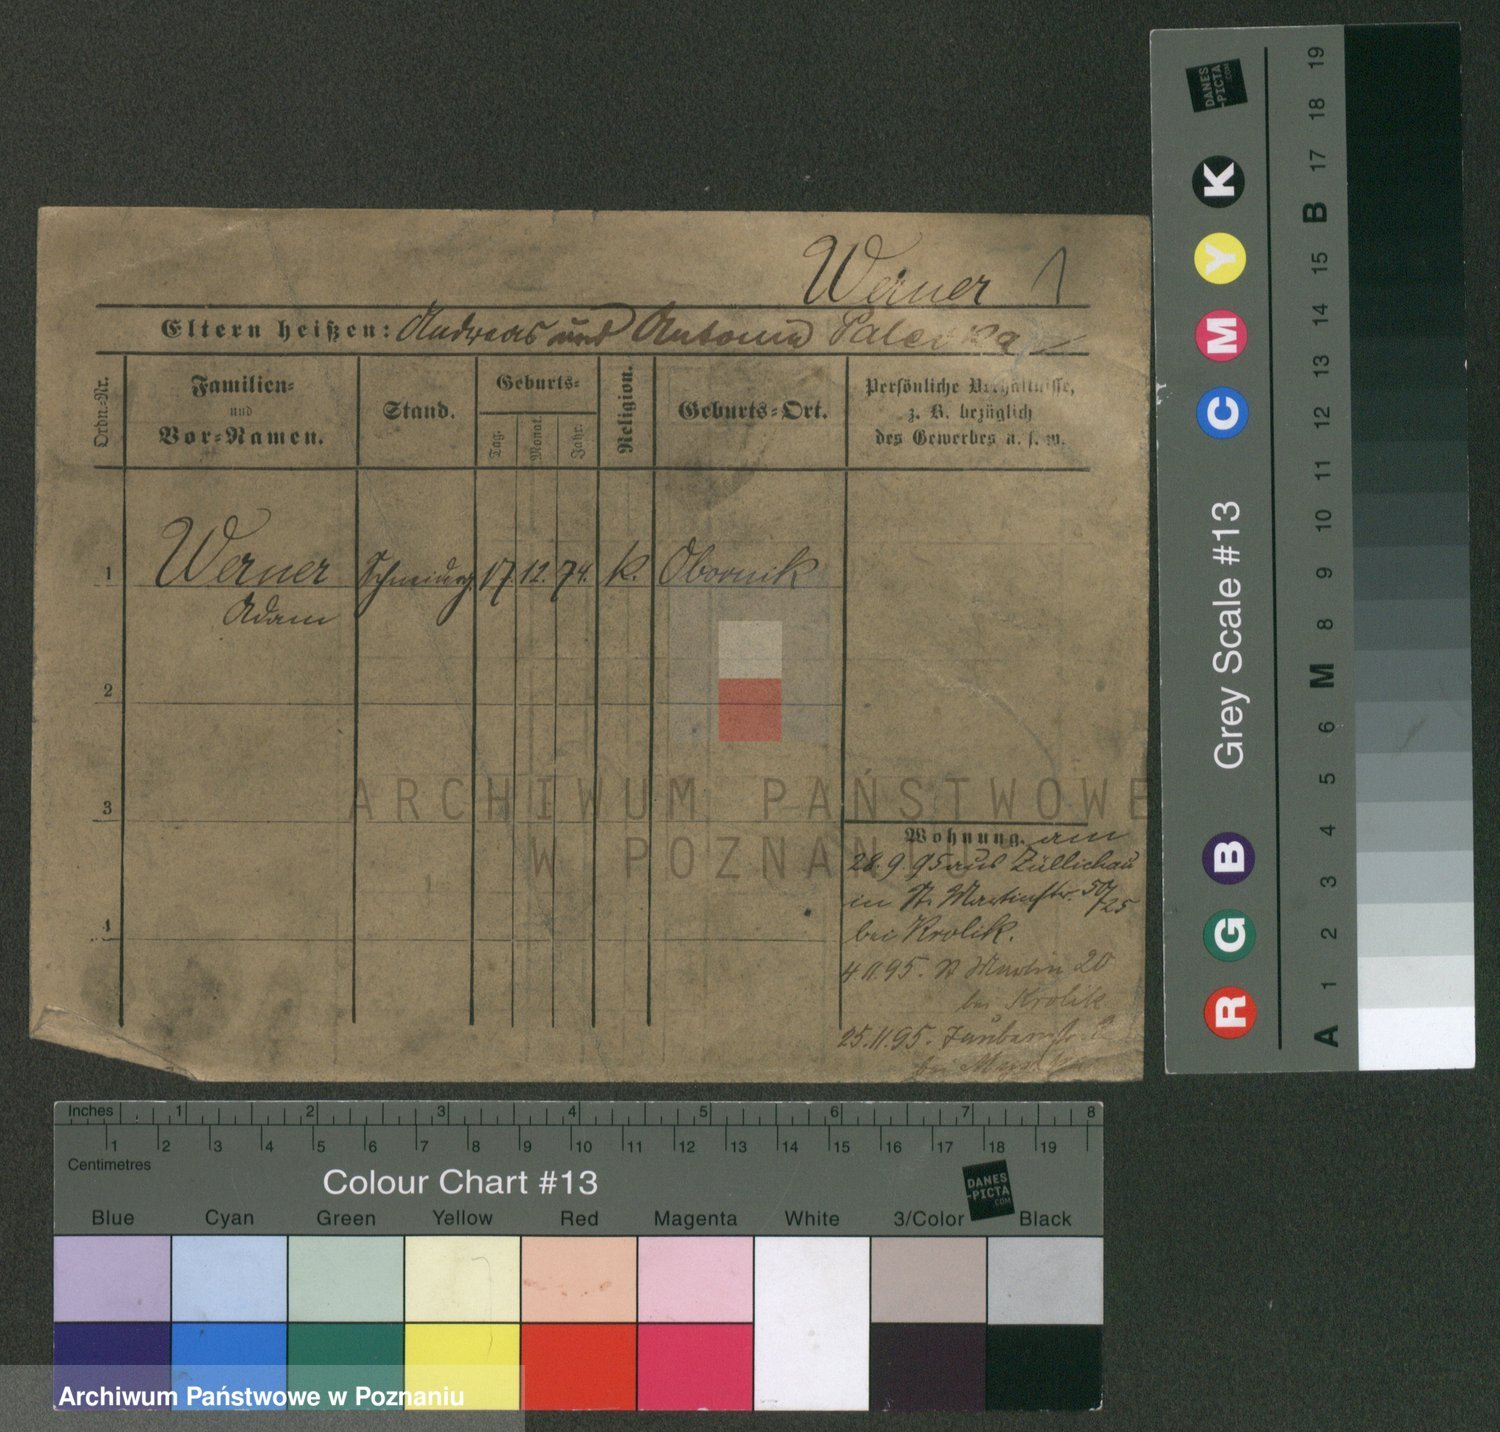 Werner
Eltern heißen: Andreas und Antonina
Ordn.-Nr.
Familien-
und
Vor-Namen.
Stand.
Geburts-
Tag.
Monat.
Jahr.
Religion.
Geburts-Ort.
Persönliche Verhältnisse,
z. B. bezüglich
des Gewerbes u. s. w.
1
Werner
Adam
17. 12. 74.
k.
Obornik
2
3
4
Wohnung. am
28.9.95 aus Züllichau
in St. Martinstr. 50/25
bei Krolik.
4.11.95. St Martin 20
bei Krolik
25.11.95.
bei
ARCHIWUM PAŃSTWOWE
W POZNANIU
Inches 1 2 3 4 5 6 7 8
1 2 3 4 5 6 7 8 9 10 11 12 13 14 15 16 17 18 19
Centimetres
Colour Chart #13
DANES
-PICTA
.COM
Blue Cyan Green Yellow Red Magenta White 3/Color Black
Archiwum Państwowe w Poznaniu
Grey Scale #13
R G B C M Y K
DANES
-PICTA
.COM
A 1 2 3 4 5 6 M 8 9 10 11 12 13 14 15 B 17 18 19